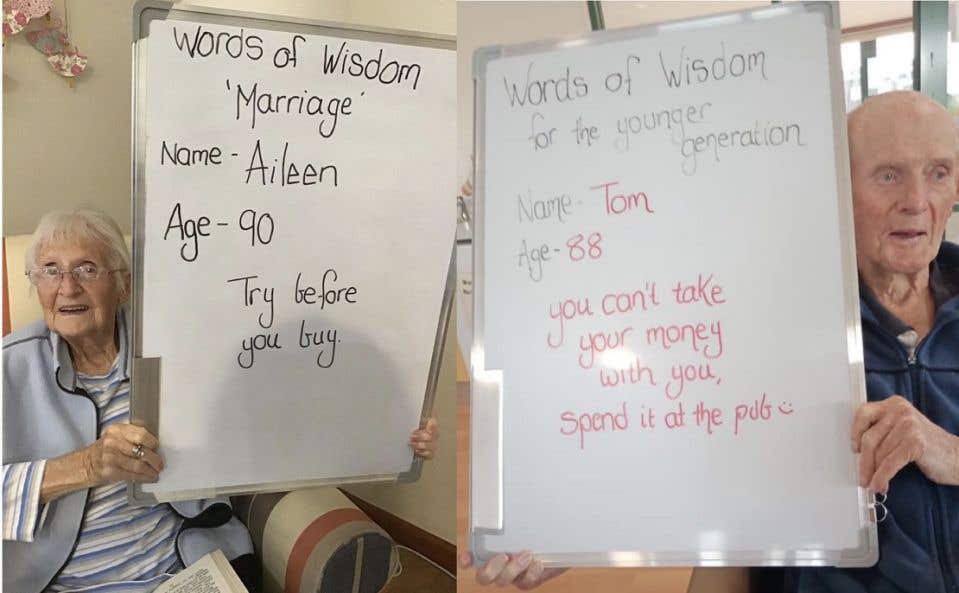 Words of Wisdom
'Marriage'
Name - Aileen
Age - 90
Try before
you buy.
Words of Wisdom
for the younger
generation
Name - Tom
Age - 88
you can't take
your money
with you,
spend it at the pub ☺